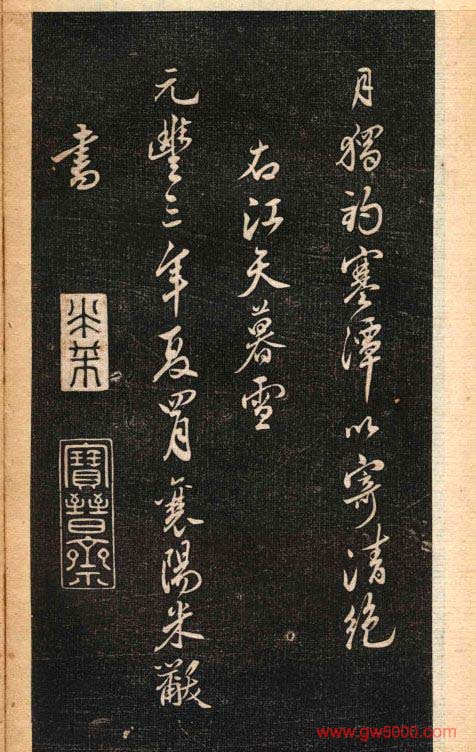 月獨釣寒潭以寄清絕
右江天暮雪
元豐三年夏四月襄陽米黻
書
米芾
寶晉齋
www.gw5000.com